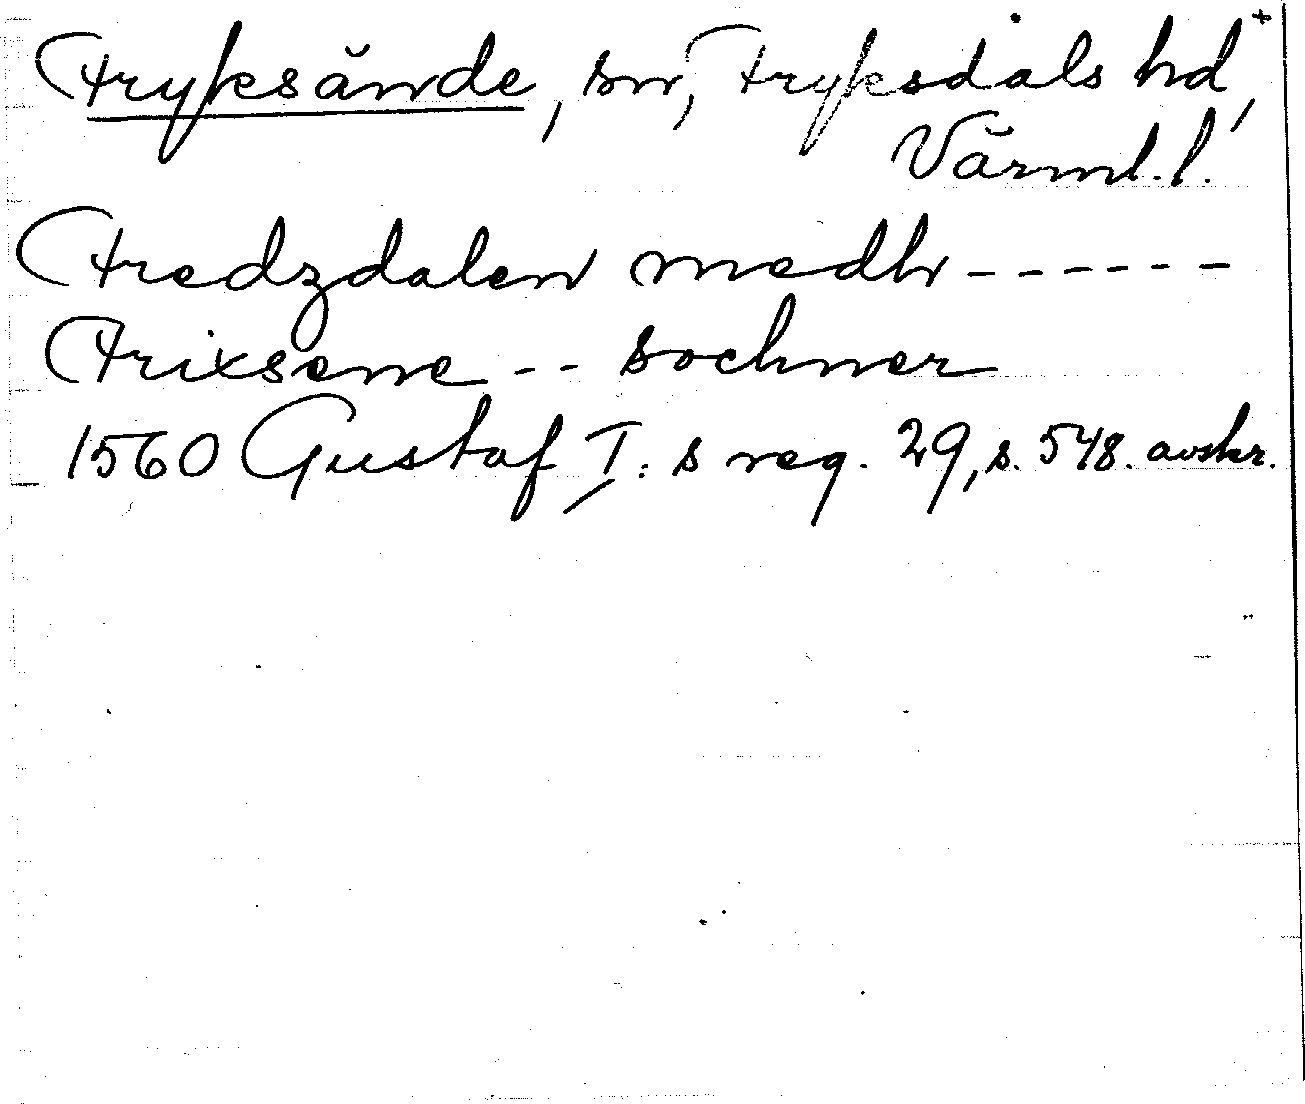 Fryksände, sn, Fryksdals hd,
Värml.l.
Fredzdalen medh ------
Frixsene -- sochner
1560 Gustaf I:s reg. 29, s. 548. avskr.